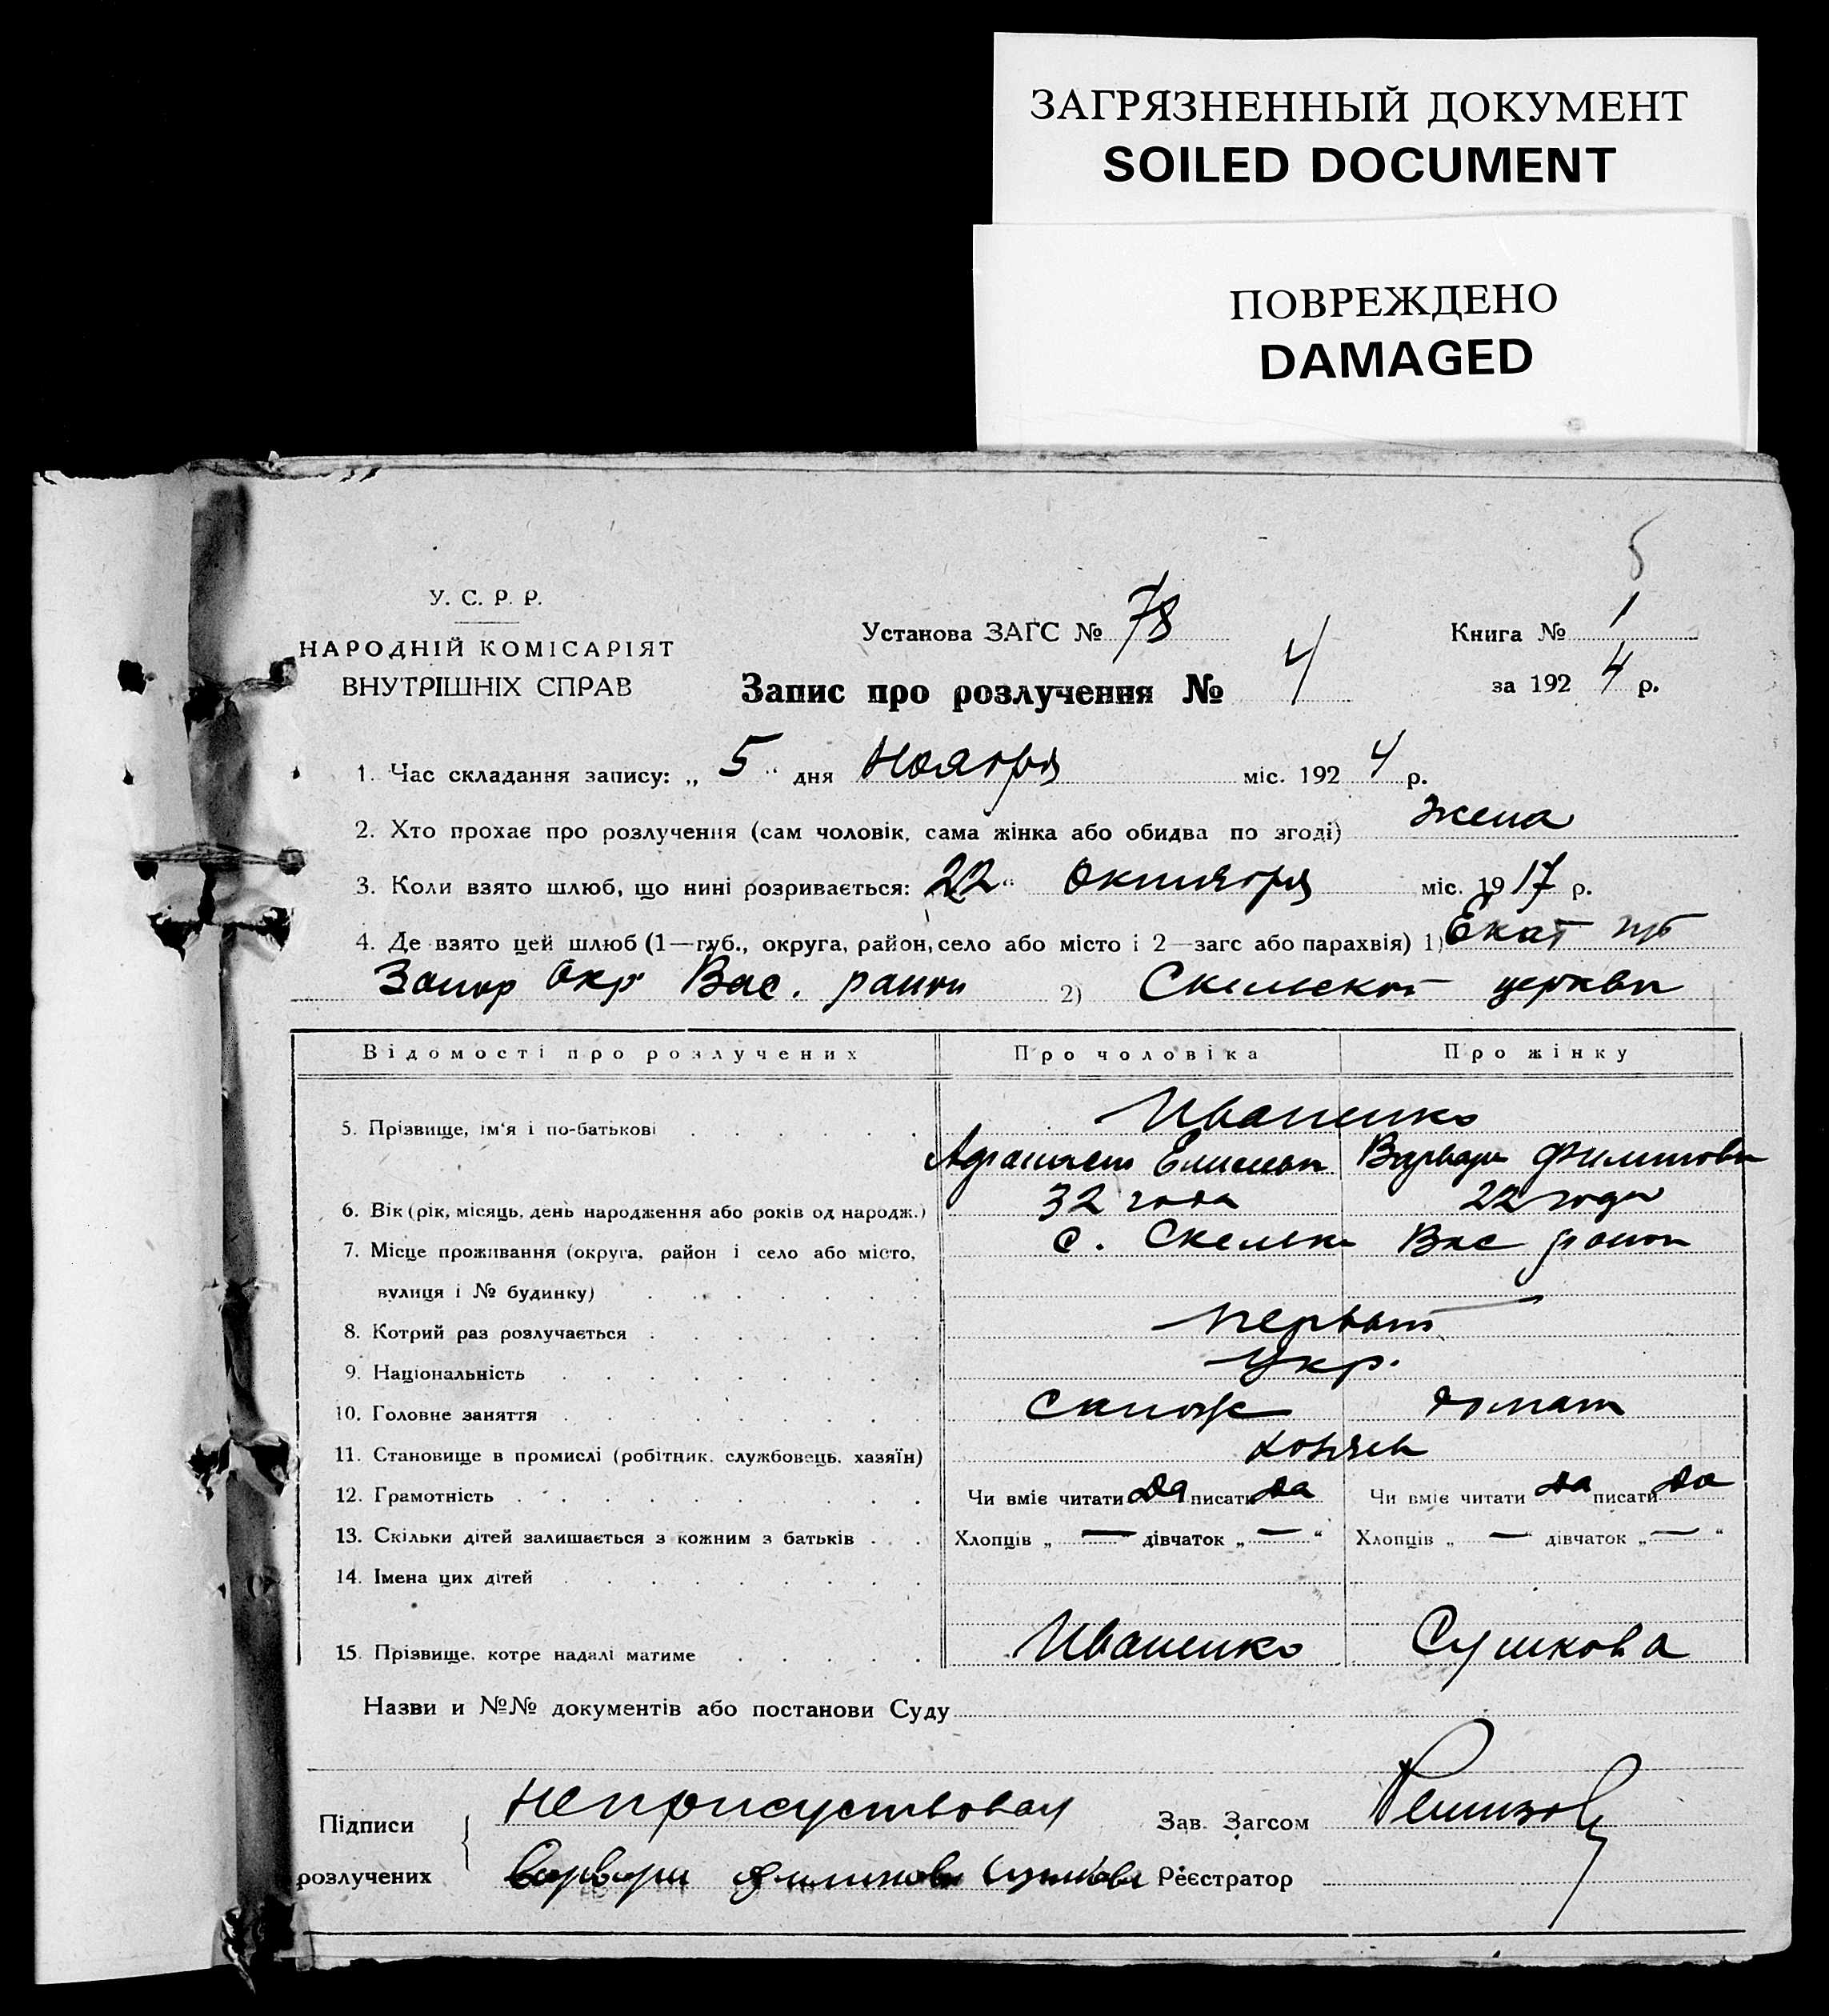 ЗАГРЯЗНЕННЫЙ ДОКУМЕНТ
SOILED DOCUMENT
ПОВРЕЖДЕНО
DAMAGED
5
У. С. Р. Р.
НАРОДНІЙ КОМІСАРІЯТ
ВНУТРІШНІХ СПРАВ
Установа ЗАГС № 78
Книга № 1
Запис про розлучення № 4
за 192 4 р.
1. Час складання запису: „ 5 “ дня Ноября міс. 192 4 р.
2. Хто прохає про розлучення (сам чоловік, сама жінка або обидва по згоді) жена
3. Коли взято шлюб, що нині розривається: 22 “ Октября міс. 19 17 р.
4. Де взято цей шлюб (1—губ., округа, район, село або місто і 2—загс або парахвія) 1) Екат губ
Запор Окр Вас. район 2) Скельской церкви
Відомості про розлучених Про чоловіка Про жінку
5. Прізвище, ім'я і по-батькові Иваненко
Афанасий Елисеев Варвара Филипова
6. Вік (рік, місяць, день народження або років од народж.) 32 года 22 года
7. Місце проживання (округа, район і село або місто, с. Скелька Вас район
вулиця і № будинку)
8. Котрий раз розлучається первый
9. Національність Укр.
10. Головне заняття сапож домаш
11. Становище в промислі (робітник, службовець, хазяїн) хозяев
12. Грамотність Чи вміє читати да писати да Чи вміє читати да писати да
13. Скільки дітей залишається з кожним з батьків Хлопців „ — “ дівчаток „ — “ Хлопців „ — “ дівчаток „ — “
14. Імена цих дітей
15. Прізвище, котре надалі матиме Иваненко Сушкова
Назви и №№ документів або постанови Суду
Підписи неприсуствовал Зав. Загсом
розлучених Варвара Филипова Сушкова Реєстратор